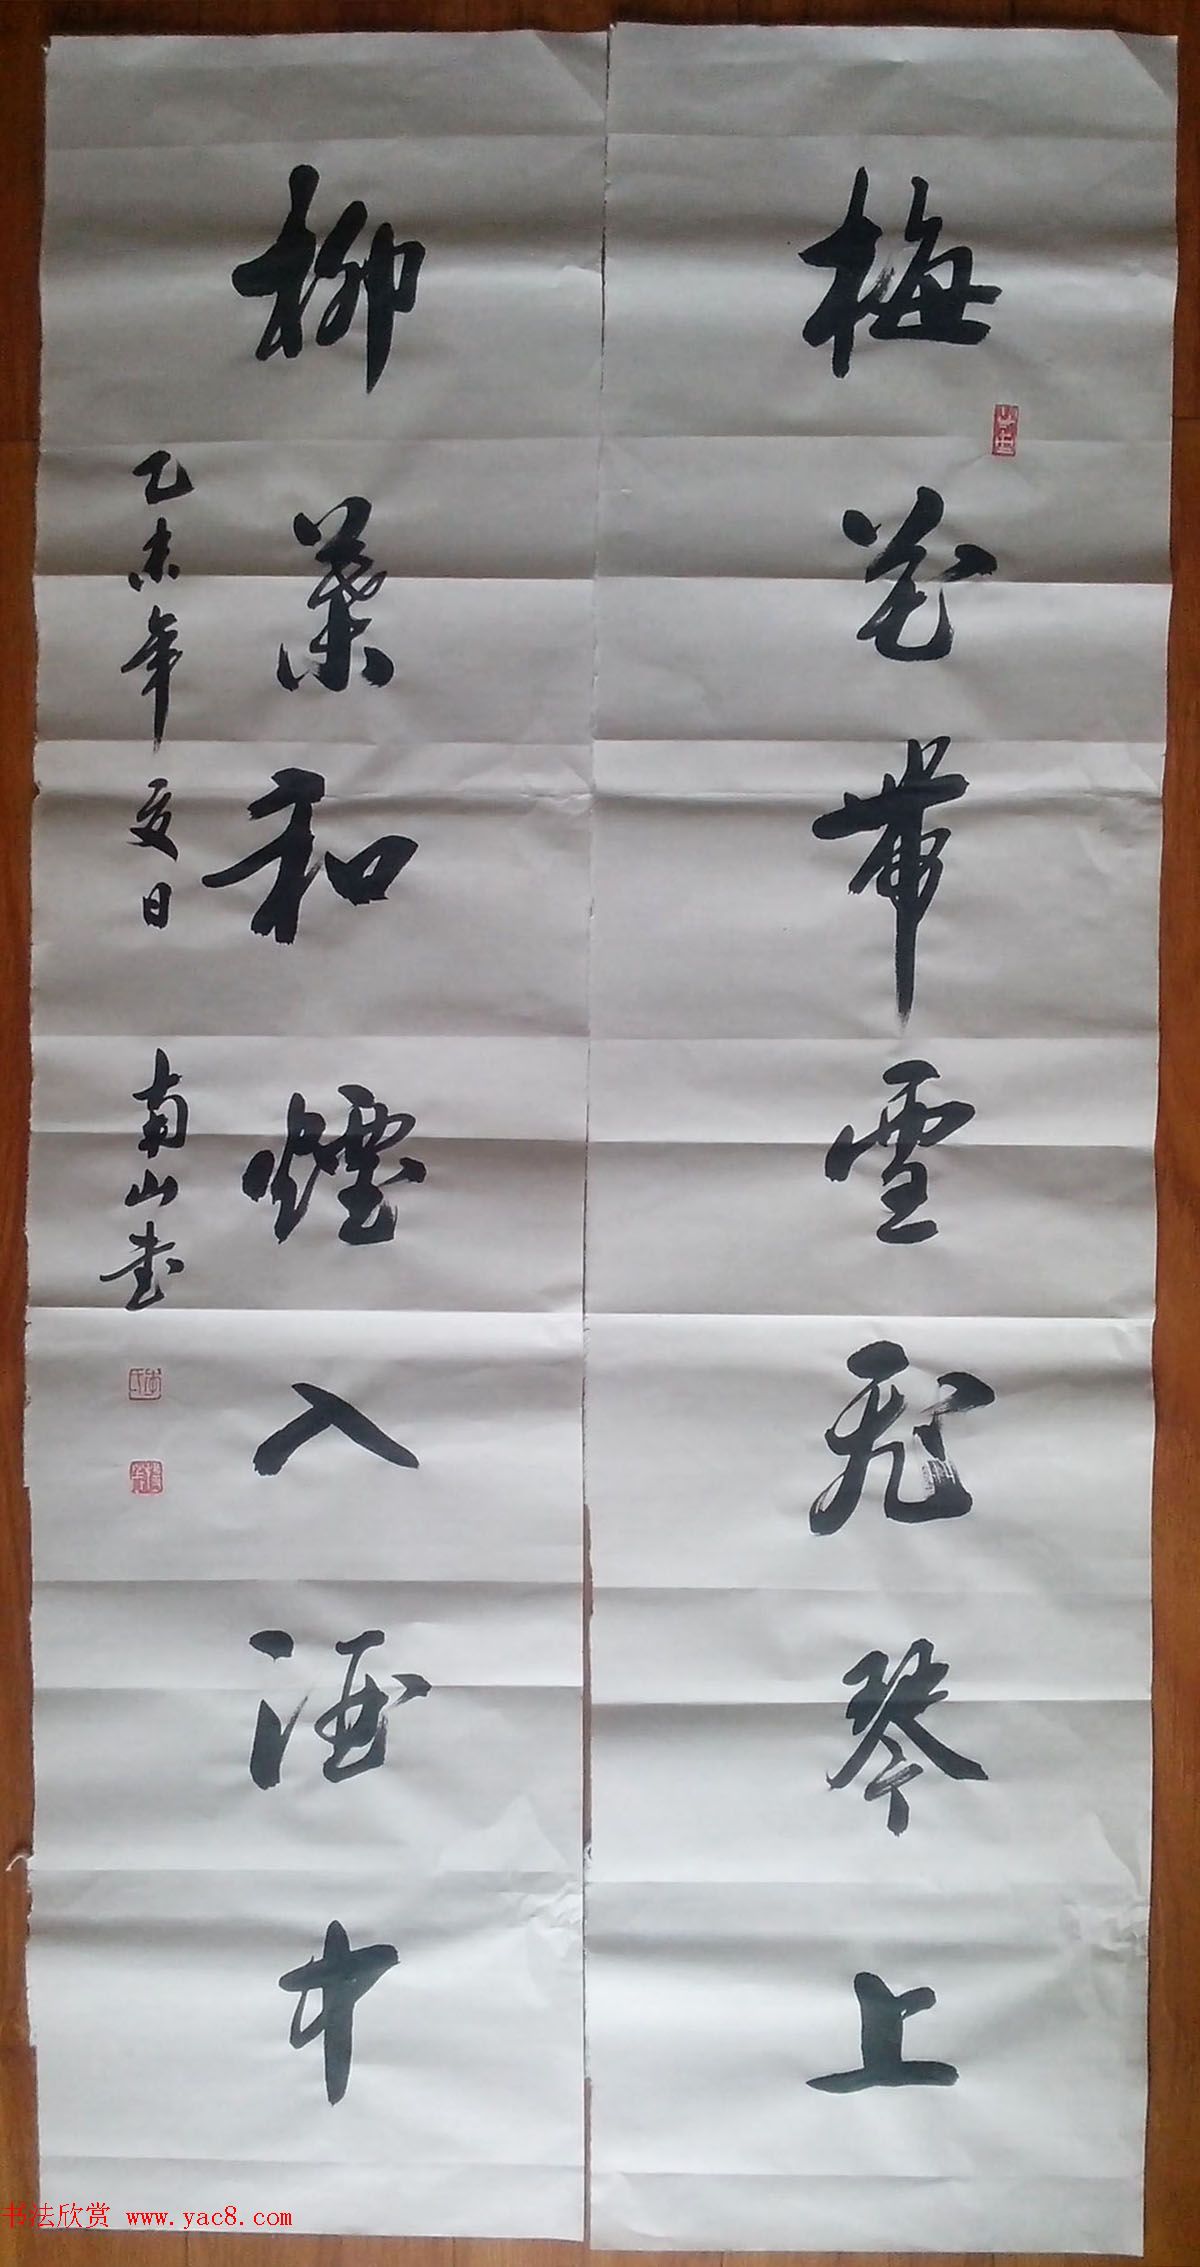 梅花带雪飛琴上
柳葉和煙入酒中
乙未年夏日 南山书
书法欣赏 www.yac8.com